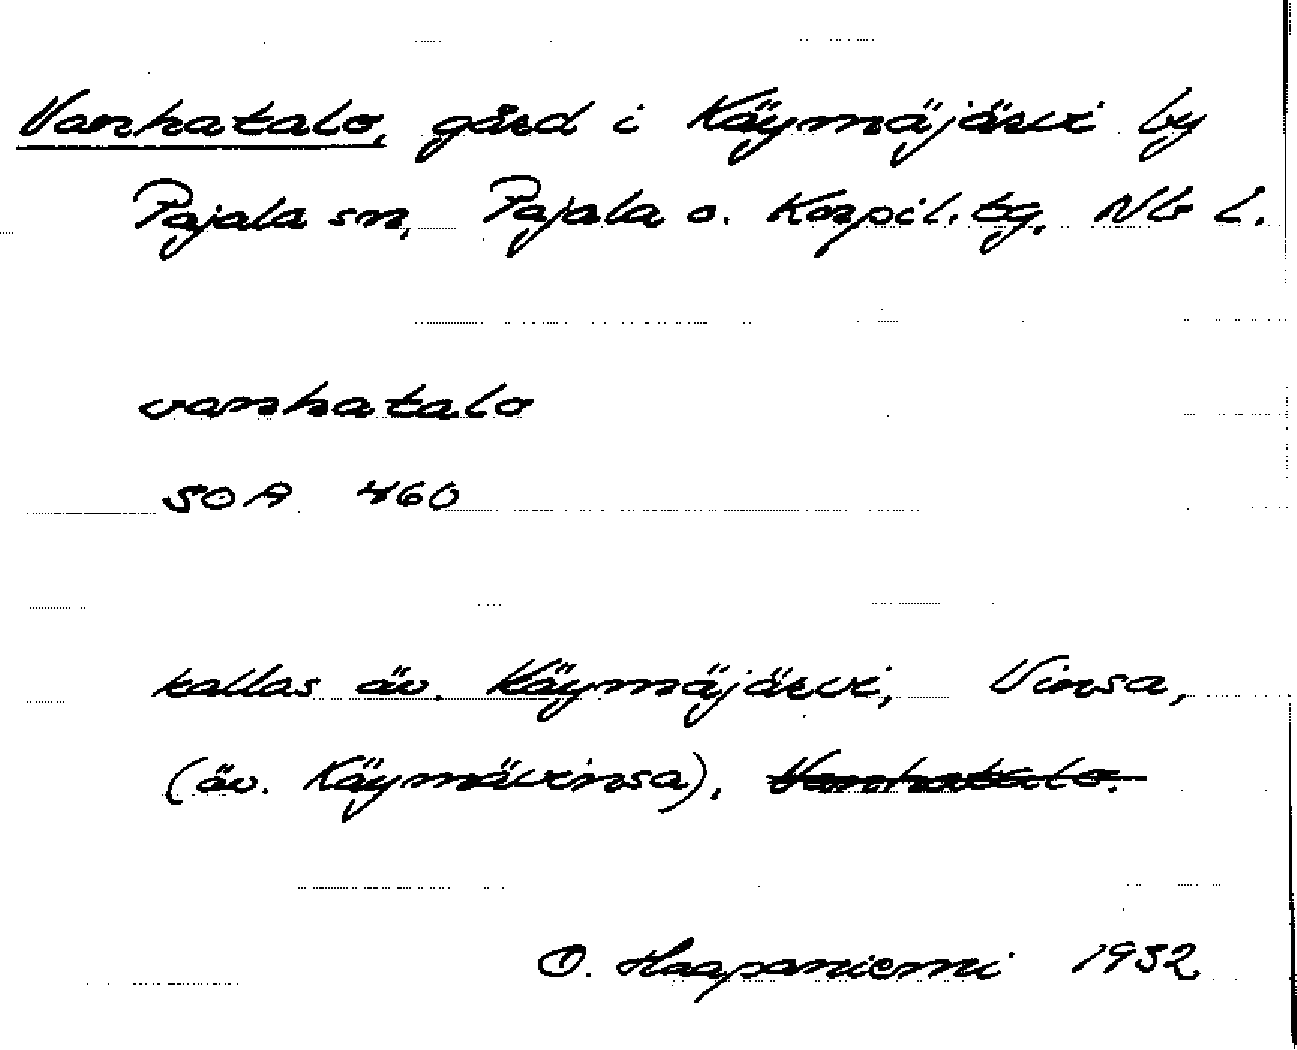 Vanhatalo, gård i Käymäjärvi by
Pajala sn, Pajala o. Korpil. tg. Nb l.
vanhatalo
SOA 460
kallas äv. Käymäjärvi, Vinsa,
(äv. Käymävinsa), Vanhatalo.
O. Haapaniemi 1932